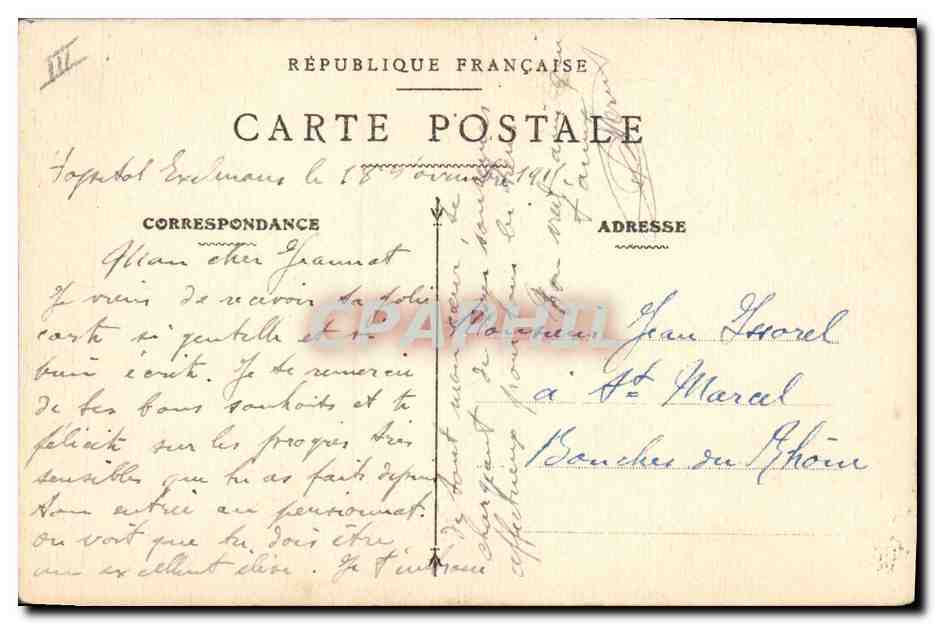 III
RÉPUBLIQUE FRANÇAISE
CARTE POSTALE
Hopital Exelmans le 18 Novembre 191
CORRESPONDANCE
ADRESSE
Mon cher Jeannot
Je viens de recevoir ta jolie
carte si gentille et si
bien écrite. Je te remercie
de tes bons souhaits et te
félicite sur les progrès très
sensibles que tu as faits depuis
ton entrée au pensionnat.
on voit que tu dois être
un excellent élève. Je t'embrasse
de tout mon cœur, te
chargeant de mes
affectueux pour tous
Ton vrai ami
Monsieur Jean Isorel
à St Marcel
Bouches du Rhône
CPAPHIL